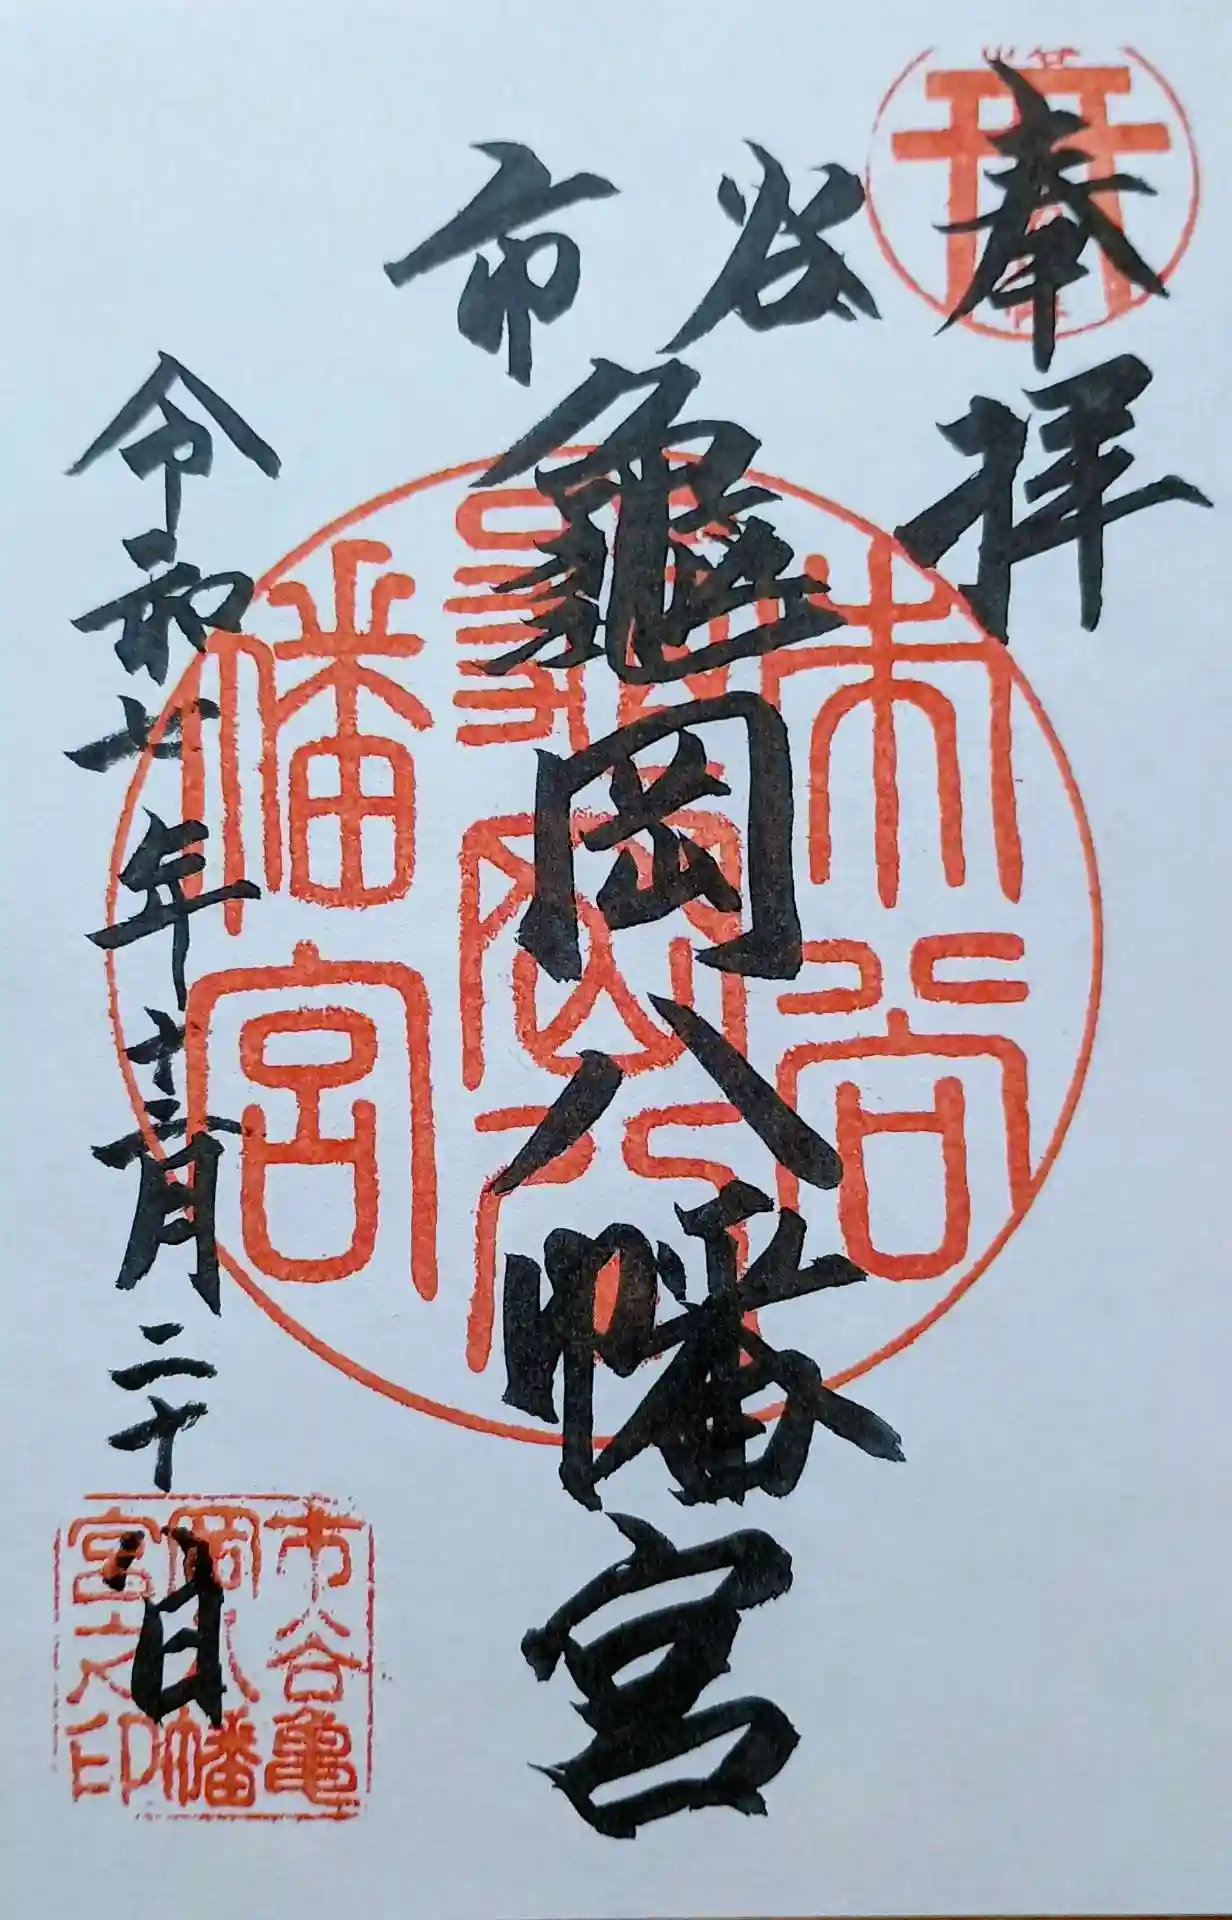 奉拝
市谷
亀岡八幡宮
令和七年十二月二十八日
市谷
亀岡八
幡宮
市谷亀
岡八幡
宮之印